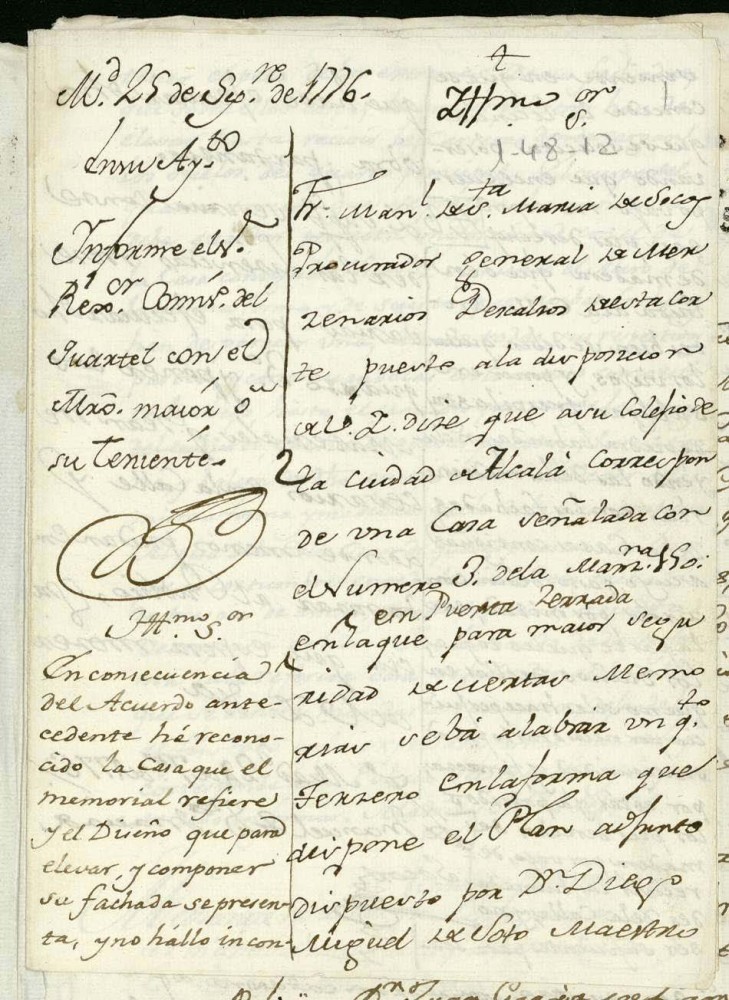 M.d 25 de Sep.re de 1776.
En su Ay.to
Informe el S.r
Rex.or Comis.º del
Quartel con el
Mro. maiór ó
su Teniente.
Yll.mo S.or
En consecuencia
del Acuerdo ante-
cedente hé recono-
cido la Casa que el
memorial refiere
y el Diseño que para
elevar, y componer
su fachada se presen-
ta, y no hállo incon-
Yllmo S.or
1-48-12
Fr. Man.l de S.ta Maria de
Procurador general de Mer
zenarios Descalsos de esta Cor
te puesto a la disposicion
de V. I. dise que a su Colegio de
la Ciudad de Alcalá Correspon
de una Casa señalada con
el Numero 3. de la Manz.na 150:
en Puerta Zerrada
en la que para maior segu
ridad de ciertas Memo
rias se bá a labrar un q.to
Terzero en la forma que
dispone el Plan adjunto
dispuesto por D.n Diego
Miguel de Soto Maestro